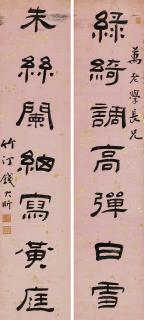 老學長兄
綠綺調高彈白雪
朱絲闌細寫黃庭
竹汀錢大昕